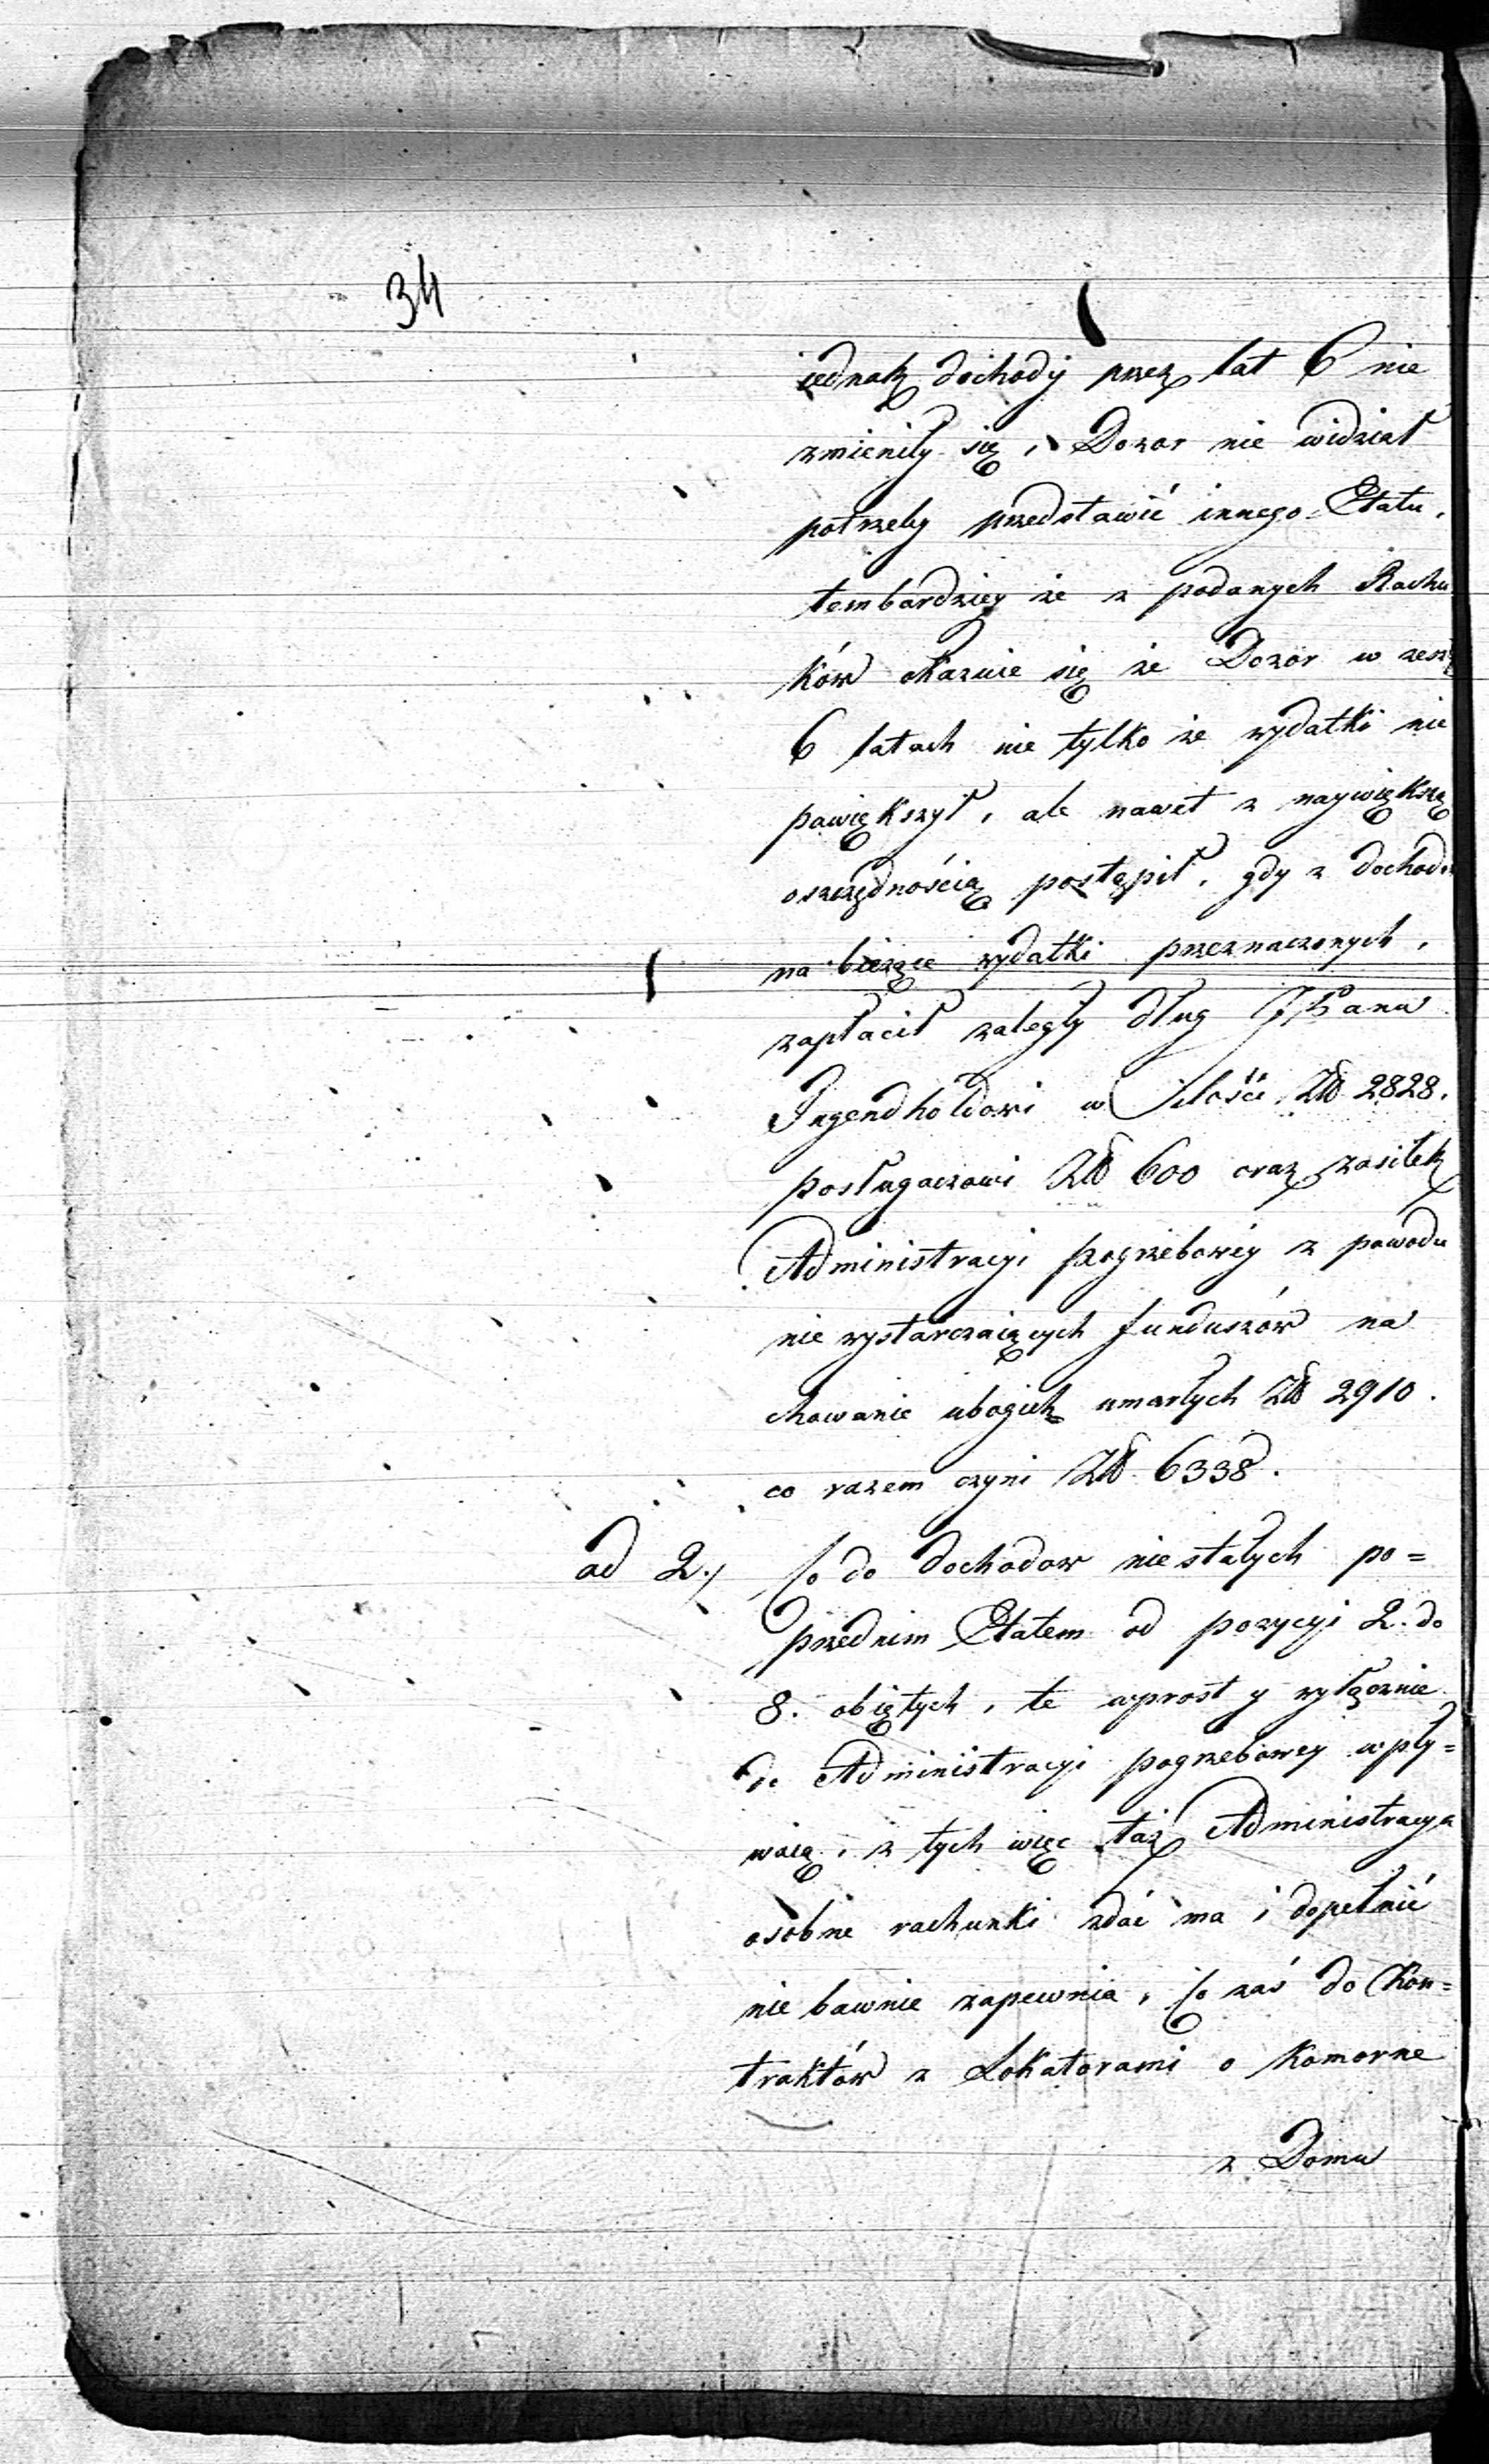 34
iednak dochody przez lat 6 nie
zmieniły się, Dozor nie widział
potrzeby przedstawić innego Etatu,
tembardziey że z podanych Rachu
ków okazuie się że Dozor w zesz
6 latach nie tylko że wydatki nie
powiększył, ale nawet z naywiększą
oszczędnością postąpił, gdy z dochod
na bieżące wydatki przeznaczonych,
zapłacił zaległy dług JPanu
Jugendholdowi w Jlości Zł 2828.
posługaczowi Zł 600 oraz zasiłek
Administracyi pogrzebowey z powodu
nie wystarczaiących funduszów na
chowanie ubogich umarłych Zł 2910.
co razem czyni Zł 6338.
ad 2./ Co do dochodow niestałych po=
przednim Etatem od pozycyi 2. do
8. obiętych, te wprost y wyłącznie
do Administracyi pogrzebowey wpły=
waią, z tych więc taż Administracya
osobne rachunki zdać ma i dopełnić
nie bawnie zapewnia, Co zaś do Kon=
traktów z Lokatorami o Komorne
z Domu